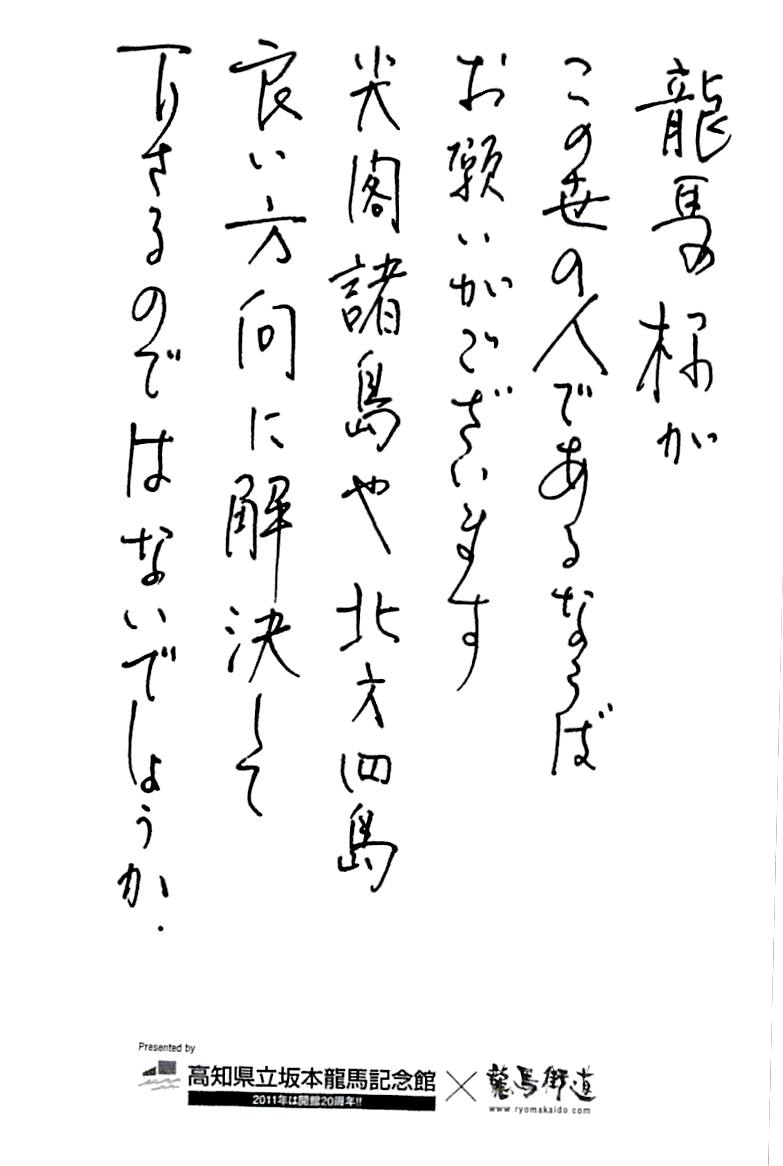 龍馬様が
この世の人であるならば
お願いがございます
尖閣諸島や北方四島
良い方向に解決して
下さるのではないでしょうか.
Presented by
高知県立坂本龍馬記念館
2011年は開館20周年!!
×
龍馬街道
www.ryomakaido.com